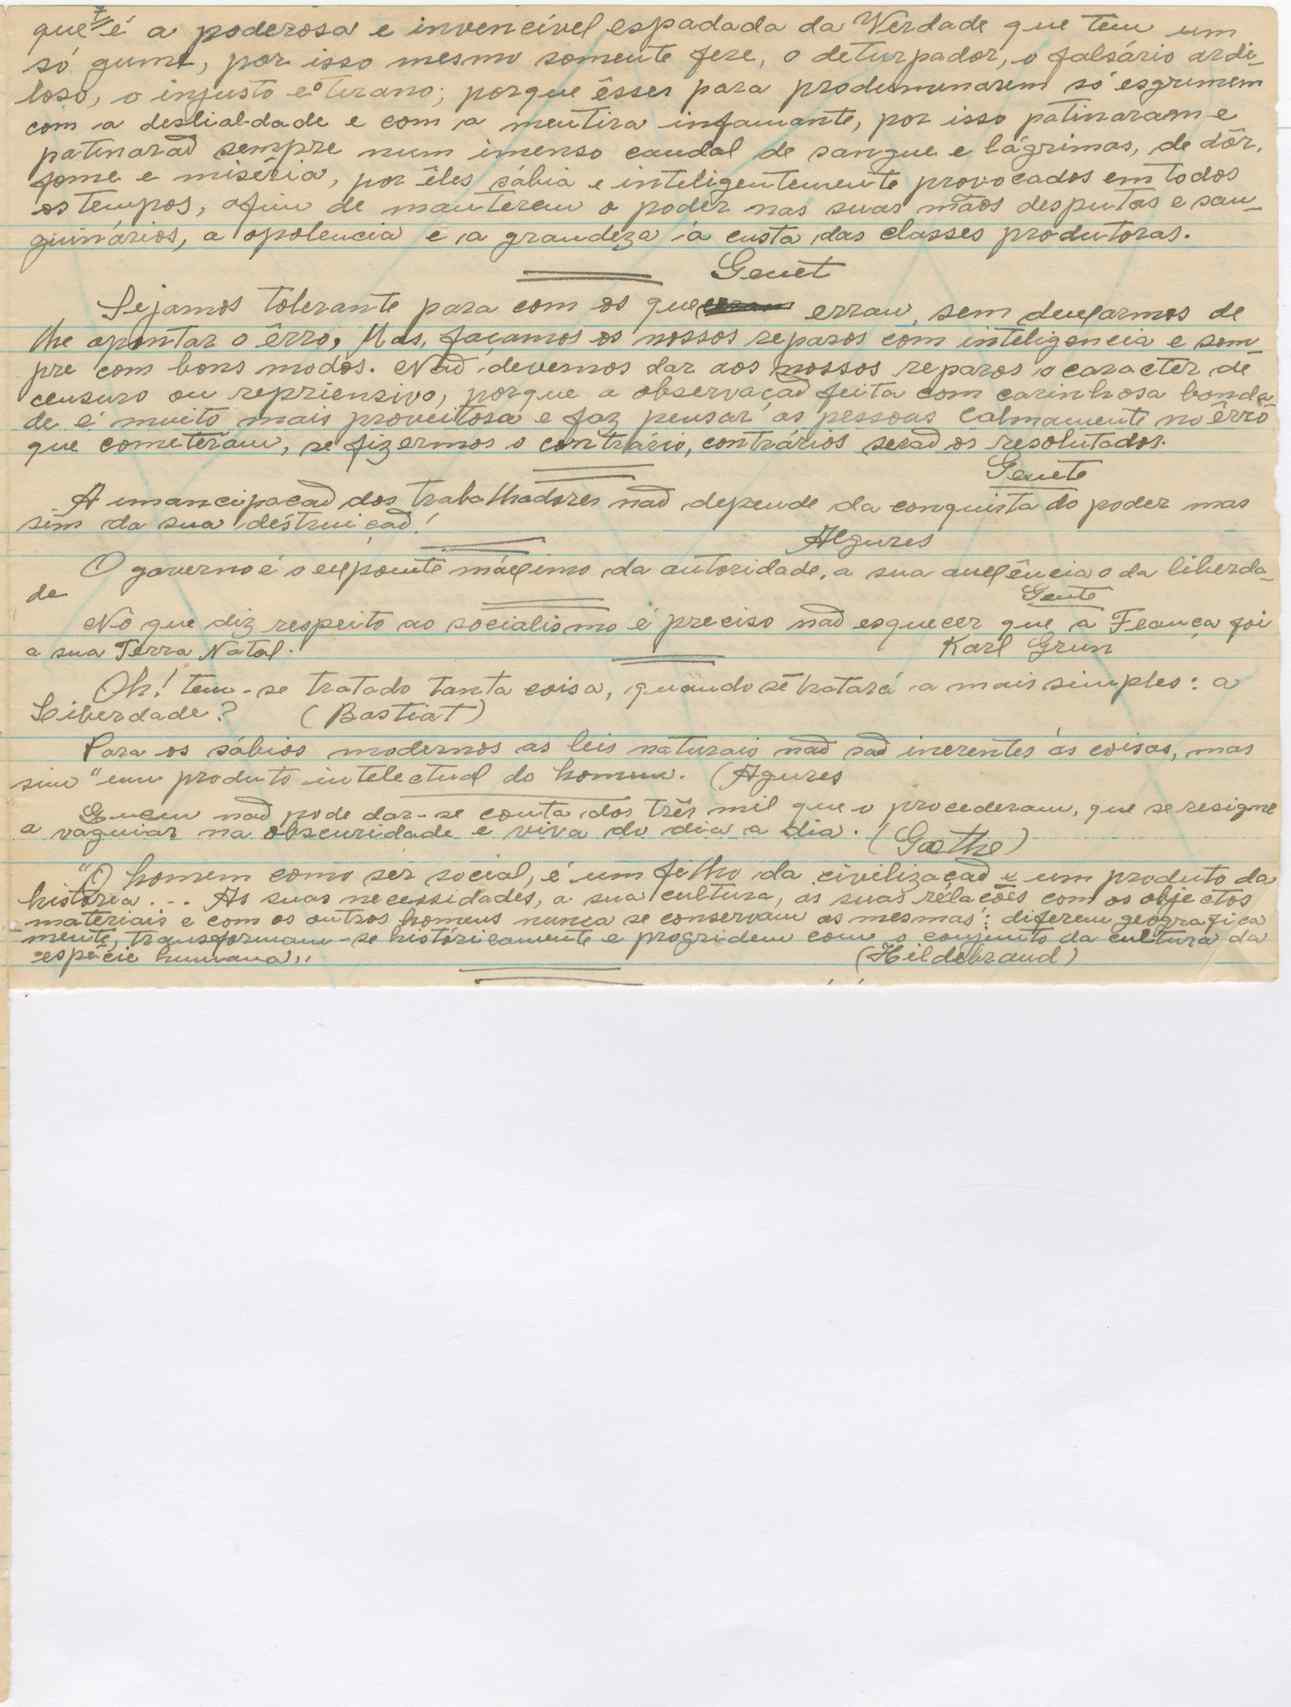 que é a poderosa e invencível espadada da Verdade que tem um
só gume, por isso mesmo somente fere, o deturpador, o falsário ardi-
loso, o injusto e o tirano; porque êsses para predominarem só esgrimem
com a deslialdade e com a mentira infamante, por isso patinaram e
patinaraõ sempre num imenso caudal de sangue e lágrimas, de dôr,
fome e miséria, por êles sábia e inteligentemente provocados em todos
os tempos, afim de manterem o poder nas suas mãos desputas e san-
guinários, a opolencia e a grandeza á custa das classes produtoras.
Genet
Sejamos tolerante para com os que erram, sem deixarmos de
lhe apontar o êrro. Mas, façamos os nossos reparos com inteligencia e sem-
pre com bons modos. Naõ devemos dar aos nossos reparos o caracter de
censura ou repriensivo, porque a observaçaõ feita com carinhosa bonda-
de é muito mais proveitosa e faz pensar as pessoas calmamente no êrro
que cometeram, se fizermos o contrário, contrários seraõ os resolutados.
Genete
A imancipaçaõ dos trabalhadores naõ depende da conquista do poder mas
sim da sua déstruiçaõ!
Algures
O governo é o expoente máximo da autoridade, a sua auxência o da liberda-
de
Gente
Nô que diz respeito ao socialismo é preciso naõ esquecer que a França foi
a sua Terra Natal.
Karl Grun
Oh! tem-se tratado tanta coisa, quando se tratará a mais simples: a
Liberdade? (Bastiat)
Para os sábios modernos as leis naturais naõ saõ inerentes ás coisas, mas
sim "um produto intelectual do homem. (Agures
Quem naõ pode dar-se conta dos três mil que o procederam, que se resigne
a vaguiar na obscuridade e viva do dia a dia. (Gœthe)
"O homem como sêr social, é um filho da civilizaçaõ e um produto da
história... As suas necessidades, a sua cultura, as suas relações com os objectos
materiais e com os outros homens nunca se conservam as mesmas: diferem geografica
mente, transformam-se históricamente e progridem com o conjunto da cultura da
espécie humana,,
(Hildebrand)